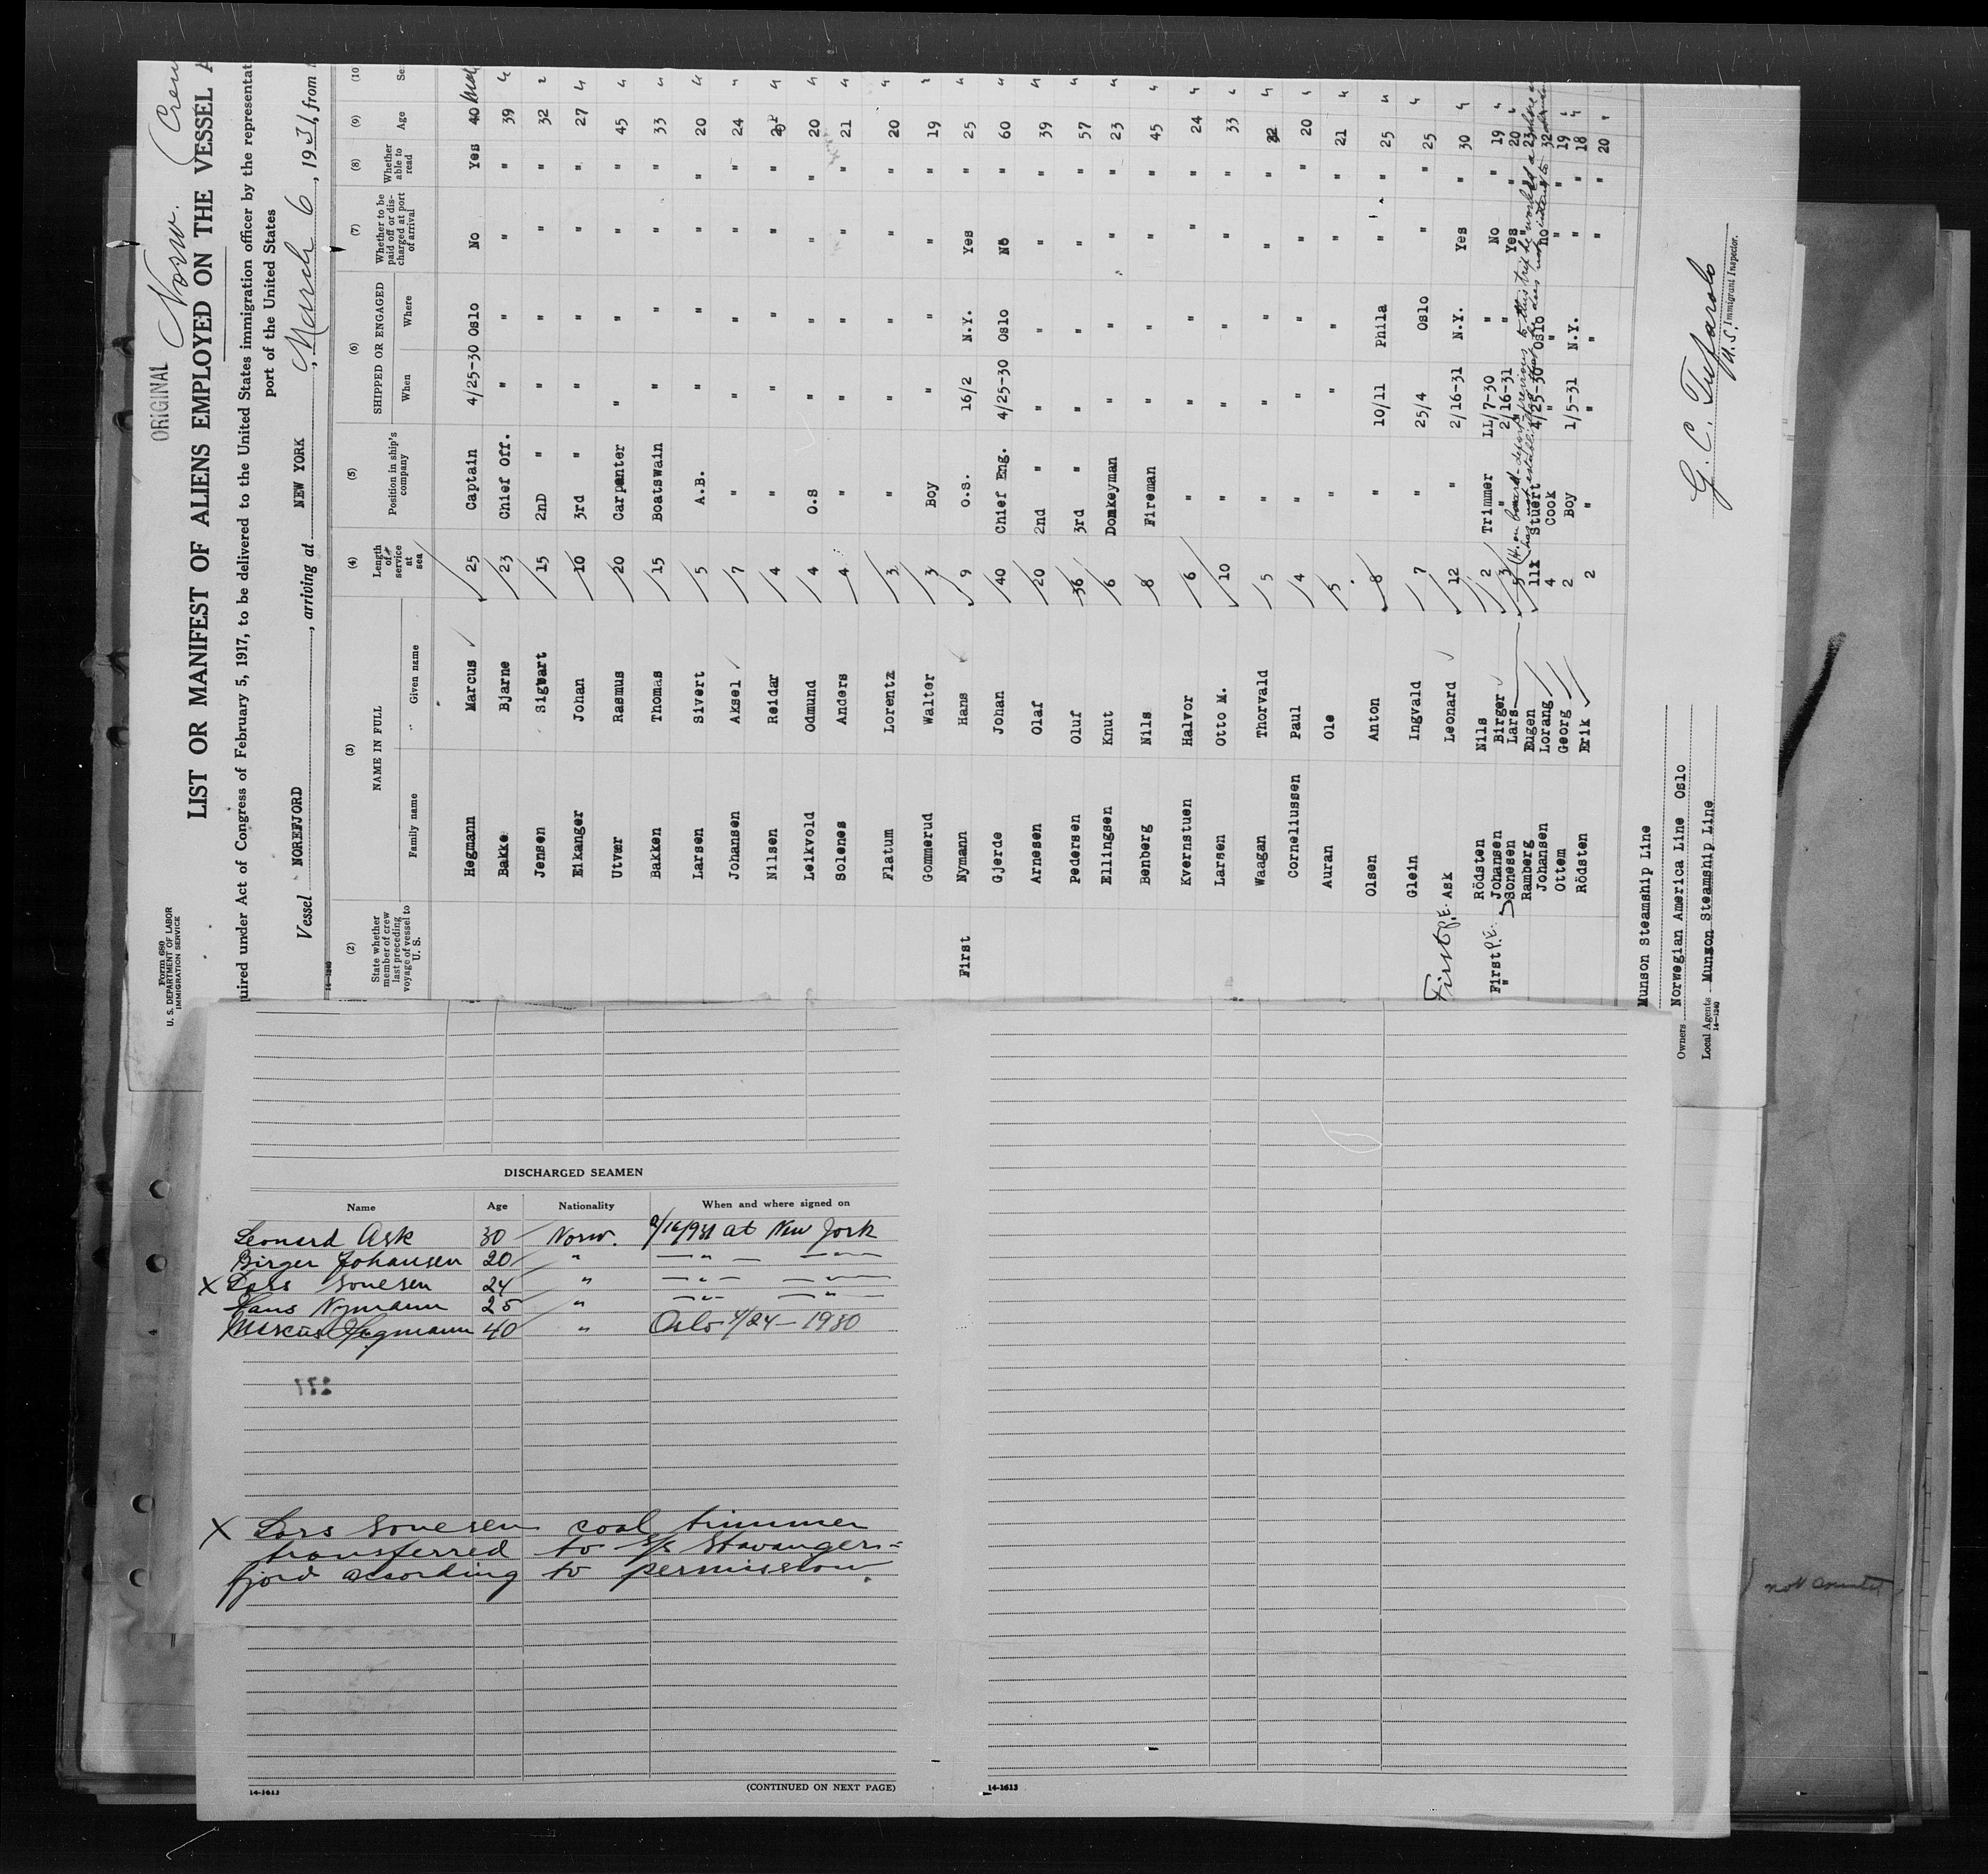 ORIGINAL
Norw. Crew
Form 680
U. S. DEPARTMENT OF LABOR
IMMIGRATION SERVICE
LIST OR MANIFEST OF ALIENS EMPLOYED ON THE VESSEL A
quired under Act of Congress of February 5, 1917, to be delivered to the United States immigration officer by the representat
port of the United States
Vessel NOREFJORD, arriving at NEW YORK, March 6, 1931, from
14-1240
(2) (3) (4) (5) (6) (7) (8) (9) (10
State whether member of crew last preceding voyage of vessel to U. S. NAME IN FULL Length of service at sea Position in ship's company SHIPPED OR ENGAGED Whether to be paid off or discharged at port of arrival Whether able to read Age Se
Family name Given name When Where
Hegmann Marcus 25 Captain 4/25-30 Oslo No Yes 40 Male
Bakke Bjarne 23 Chief Off. " " " " 39 "
Jensen Sigbart 15 2nD " " " " " 32 "
Eikanger Johan 10 3rd " " " " " 27 "
Utvær Rasmus 20 Carpenter " " " " 45 "
Bakken Thomas 15 Boatswain " " " " 33 "
Larsen Sivert 5 A.B. " " " " 20 "
Johansen Aksel 7 " " " " " 24 "
Nilsen Reidar 4 " " " " " "
Leikvold Odmund 4 O.S " " " " 20 "
Solenes Anders 4 " " " " " 21 "
Flatum Lorentz 3 " " " " " 20 "
Gommerud Walter 3 Boy " " " " 19 "
First Nymann Hans 9 O.S. 16/2 N.Y. Yes " 25 "
Gjerde Johan 40 Chief Eng. 4/25-30 Oslo No " 60 "
Arnesen Olaf 20 2nd " " " " " 39 "
Pedersen Oluf 36 3rd " " " " " 57 "
Ellingsen Knut 6 Donkeyman " " " " 23 "
Benberg Nils 8 Fireman " " " " 45 "
Kvernstuen Halvor 6 " " " " " 24 "
Larsen Otto M. 10 " " " " " 33 "
Waagan Thorvald 5 " " " " " 22 "
Corneliussen Paul 4 " " " " " 20 "
Auran Ole 5 " " " " " 21 "
Olsen Anton 8 " 10/11 Phila " " 25 "
Glein Ingvald 7 " 25/4 Oslo " 25 "
First P.E. Ask Leonard 12 " 2/16-31 N.Y. Yes " 30 "
Rödsten Nils 2 Trimmer LL/7-30 " No " 19 "
First P.E. Johansen Birger 3 " 2/16-31 " Yes " 20 "
" Sonesen Lars 5 " " " " 23
Ramberg Eugen 11 Stuert 4/25-30 Oslo no " 32
Johansen Lorang 4 Cook " " " " 19 "
Ottem Georg 2 Boy 1/5-31 N.Y. " " 18 "
Rödsten Erik 2 " " " " " 20 "
Munson Steamship Line
Owners Norwegian America Line Oslo
Local Agents Munson Steamship Line
14-1240
G. C. Tufarolo
U.S. Immigrant Inspector.
DISCHARGED SEAMEN
Name Age Nationality When and where signed on
Leonard Ask 30 Norw. 2/16/1931 at New York
Birger Johansen 20 " — " — — " —
X Lars Sonesen 24 " — " — — " —
Hans Nymann 25 " — " — — " —
Marcus Hegmann 40 " Oslo 4/24 — 1930
X Lars Sonesen coal trimmer
transferred to S/S Stavanger=
fjord according to permission.
14-1613
(CONTINUED ON NEXT PAGE)
14-1613